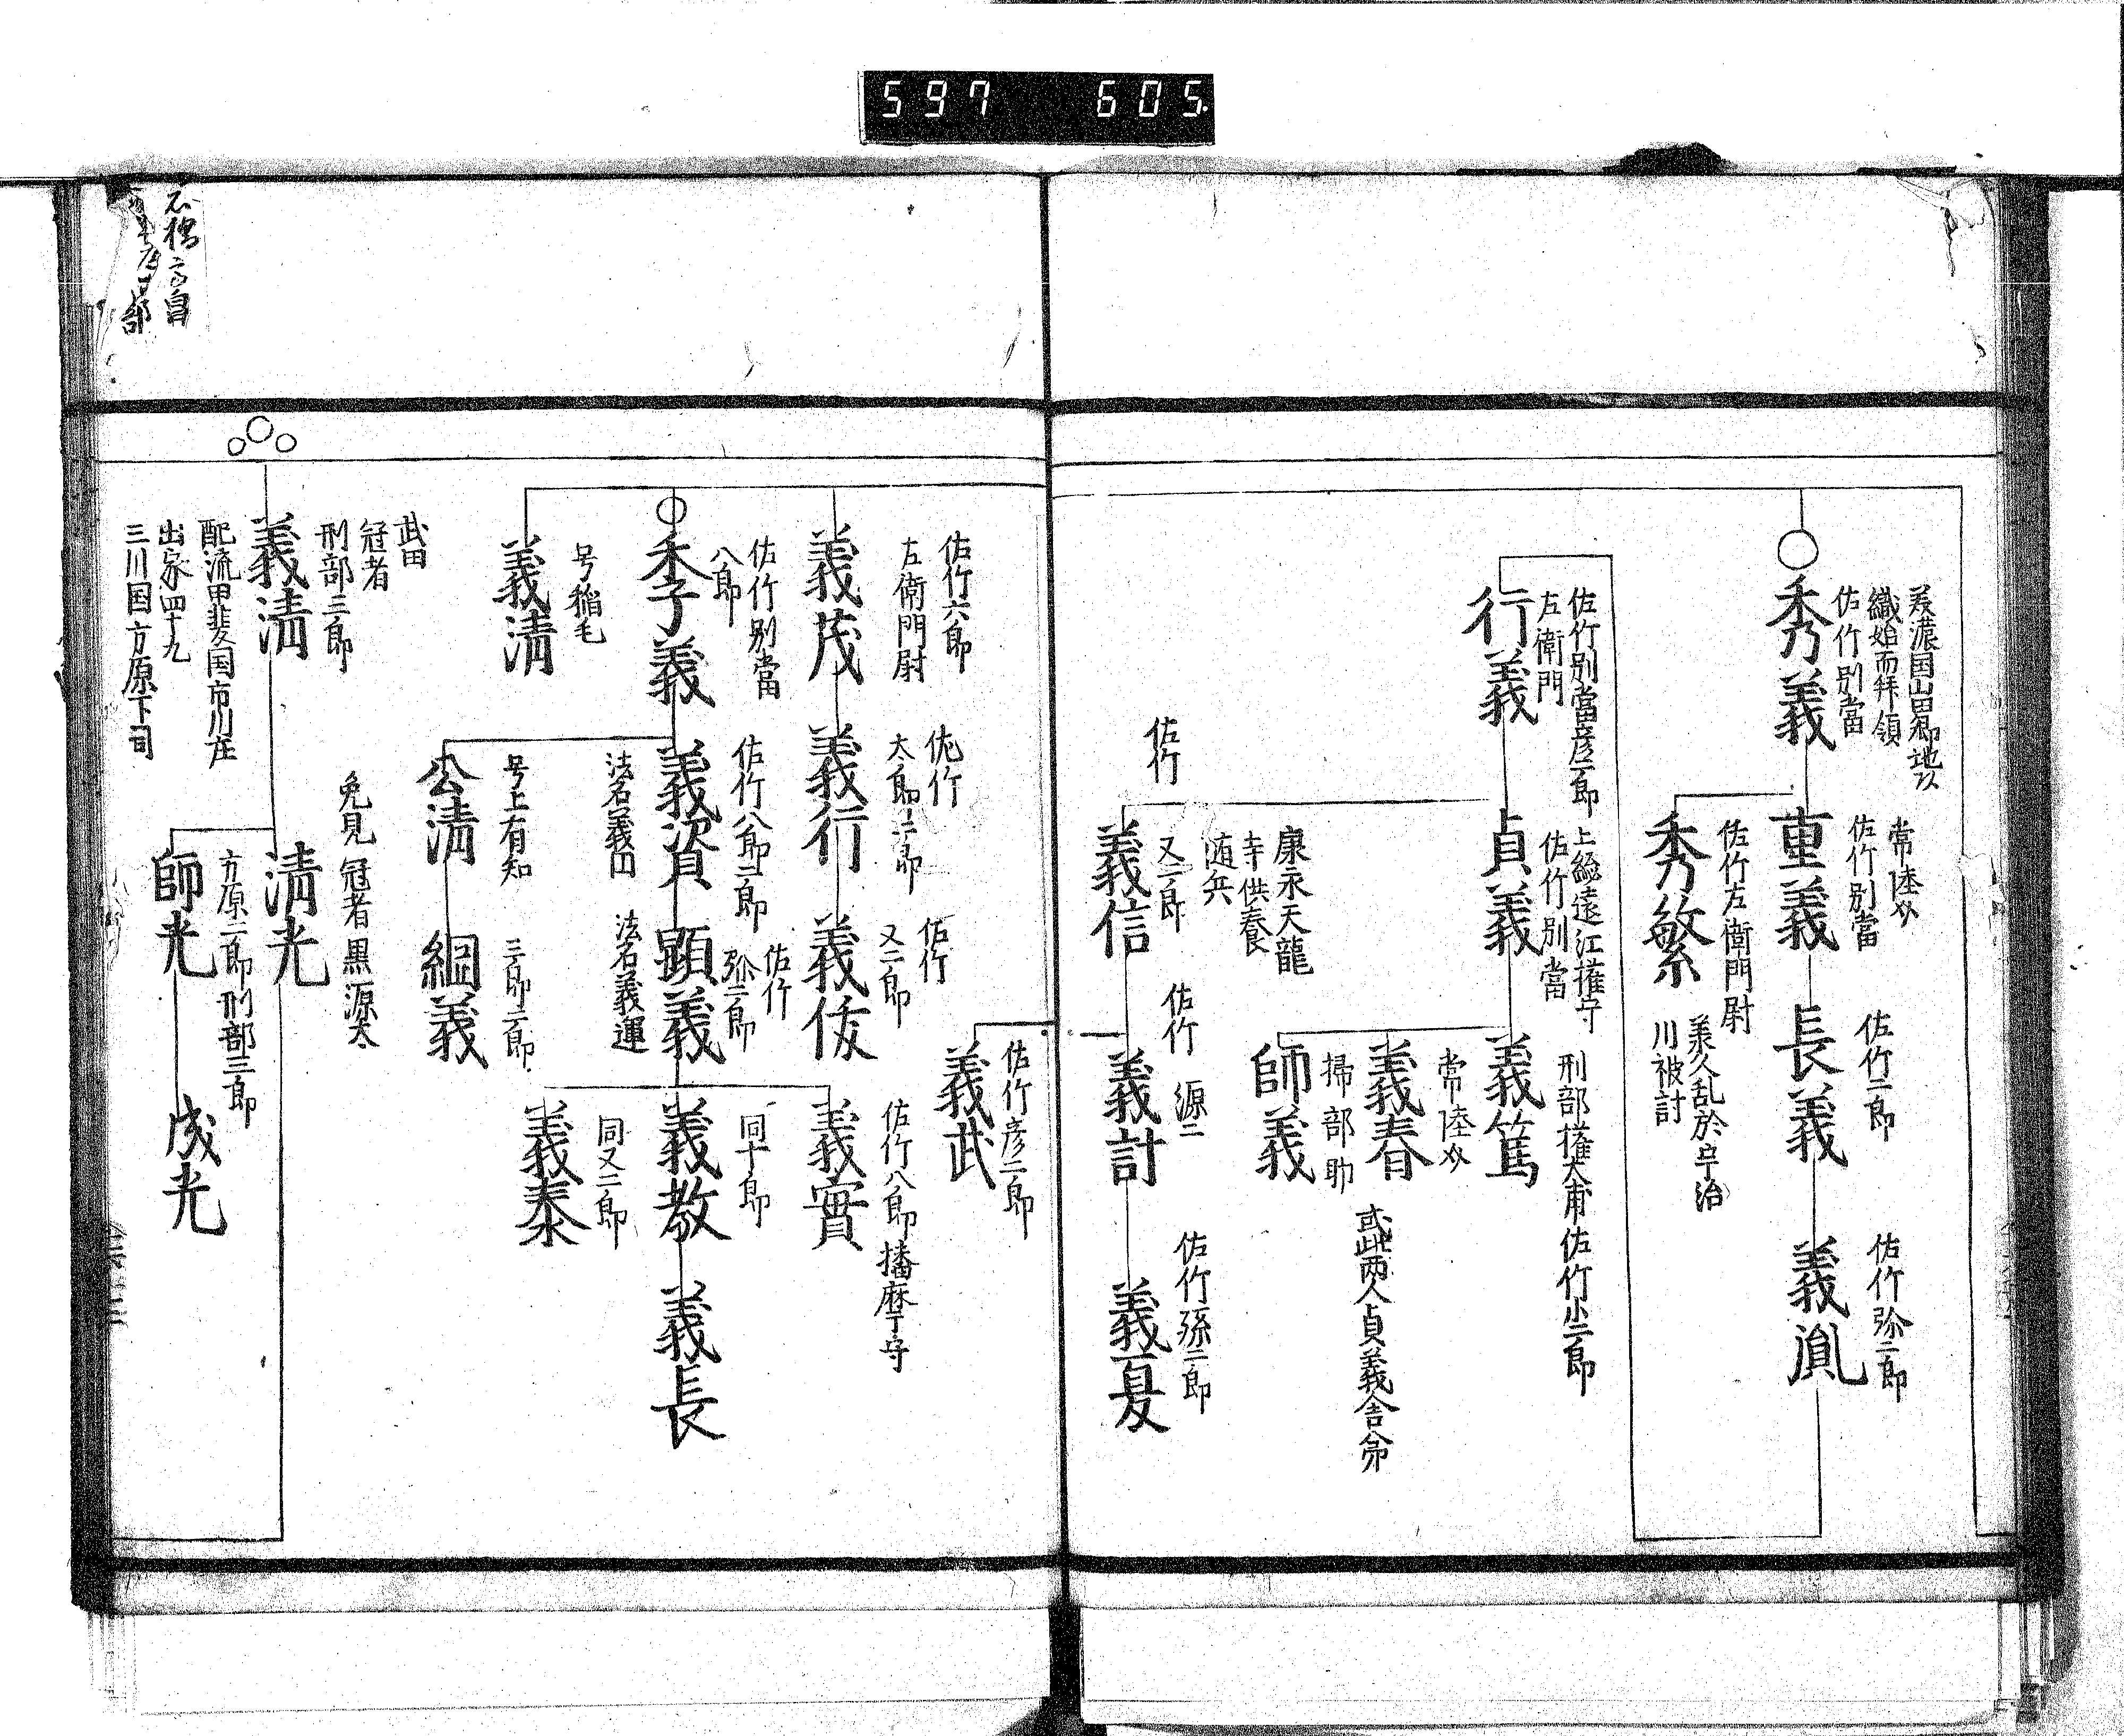 597 605
美濃国山田郷地以
織始而拝領
佐竹別當
秀義
常陸介
佐竹別當
重義
佐竹二郎
長義
佐竹弥二郎
義胤
佐竹左衛門尉
秀繁
美久乱於宇治
川被討
佐竹別當彦二郎
左衛門
行義
上総遠江権守
佐竹別當
貞義
刑部権大甫佐竹小二郎
義篤
常陸介
義春
掃部助
師義
或此両人貞義舎弟
康永天龍
寺供養
随兵
佐竹
又二郎
義信
佐竹 源二
義計
佐竹孫二郎
義夏
佐竹彦二郎
義武
佐竹六郎
左衛門尉
義茂
佐竹
太郎二郎
義行
佐竹
又二郎
義俊
佐竹八郎播麻守
義實
佐竹別當
八郎
季義
佐竹八郎二郎
義資
法名義田
佐竹
弥二郎
顕義
法名義運
同十郎
義教
義長
同又二郎
義泰
号稲毛
義清
号上有知
公清
三郎二郎
綱義
武田
冠者
刑部三郎
義清
配流甲斐国市川庄
出家四十九
三川国方原下司
免見冠者黒源太
清光
方原二郎刑部三郎
師光
成光